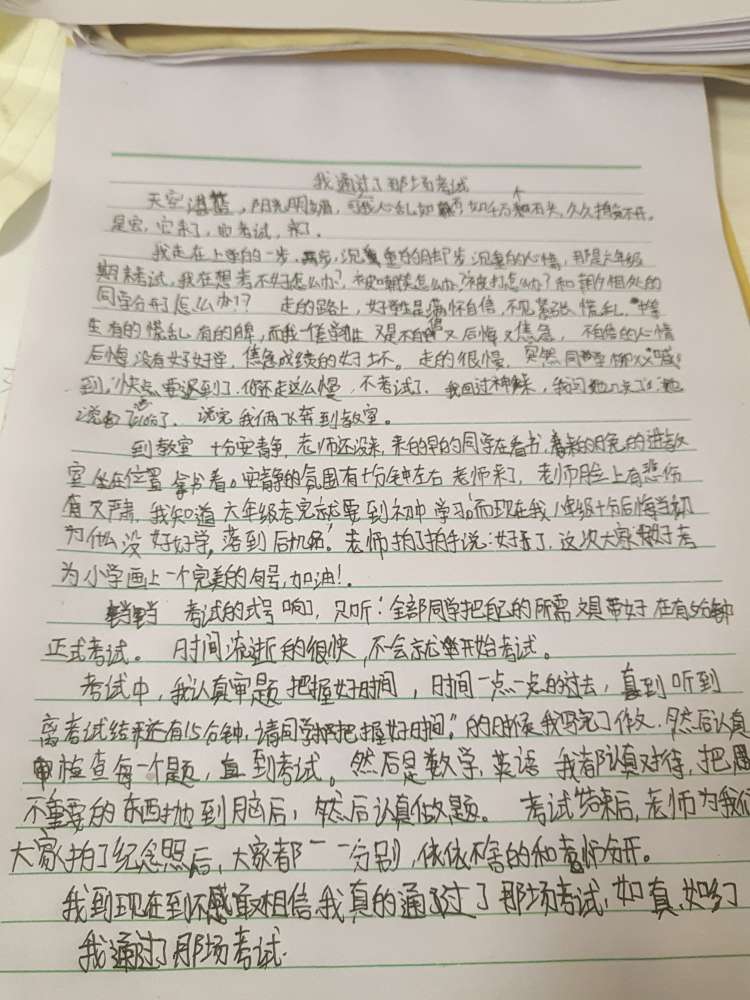 我通过了那场考试
天空湛蓝,阳光明媚,可我心乱如 如千万和石头,久久抬知不开。
是它,它来了,的考试,来了。
我走在上学的一步、两步,沉重的脚步沉重的心情,那是六年级
期末考试,我在想考不好怎么办?,被嘲笑怎么办?被打怎么办?和朝夕相处的
同学分开了怎么办!? 走的路上,好学生是满怀自信,不见紧张慌乱,中等
生有的慌乱有的脾,而我一差学生 又是不自信又后悔又焦急, 不自信的心情
后悔没有好好学,焦急成绩的好坏。走的很慢, 突然同学 喊
到,"快点要迟到了,你还走这么慢,不考试了,我回过神来,我问她几点了她
说 了,说完我俩飞奔到教室。
到教室 十分安静,老师还没来,来的早的同学在看书,来的晚的进教
室坐在位置拿书看。安静的氛围有十分钟左右 老师来了, 老师脸上有悲伤
有又严肃,我知道六年级考完就要到初中学习。而现在我八年级十分后悔当初
为什么没好好学,落到后机名。老师拍了拍手说:好了,这次大家好考
为小学画上一个完美的句号,加油!。
铛铛 考试的式号响了,只听:全部同学把自己的所需文具带好在有5分钟
正式考试。 时间流逝的很快,不会就开始考试。
考试中,我认真审题 把握好时间,时间一点一点的过去,直到听到
离考试结束还有15分钟,请同学把把握好时间。"的时候我写完了作文,然后认真
审检查每一个题,直到考试。然后是数学,英语 我都认真对待,把
不重要的东西抛到脑后,然后认真做题。 考试结束后,老师为我们
大家拍了纪念照后,大家都一一分别,依依不舍的和老师分开。
我到现在到不感敢相信,我真的通了过了那场考试,如真,如幻
我通过了那场考试.